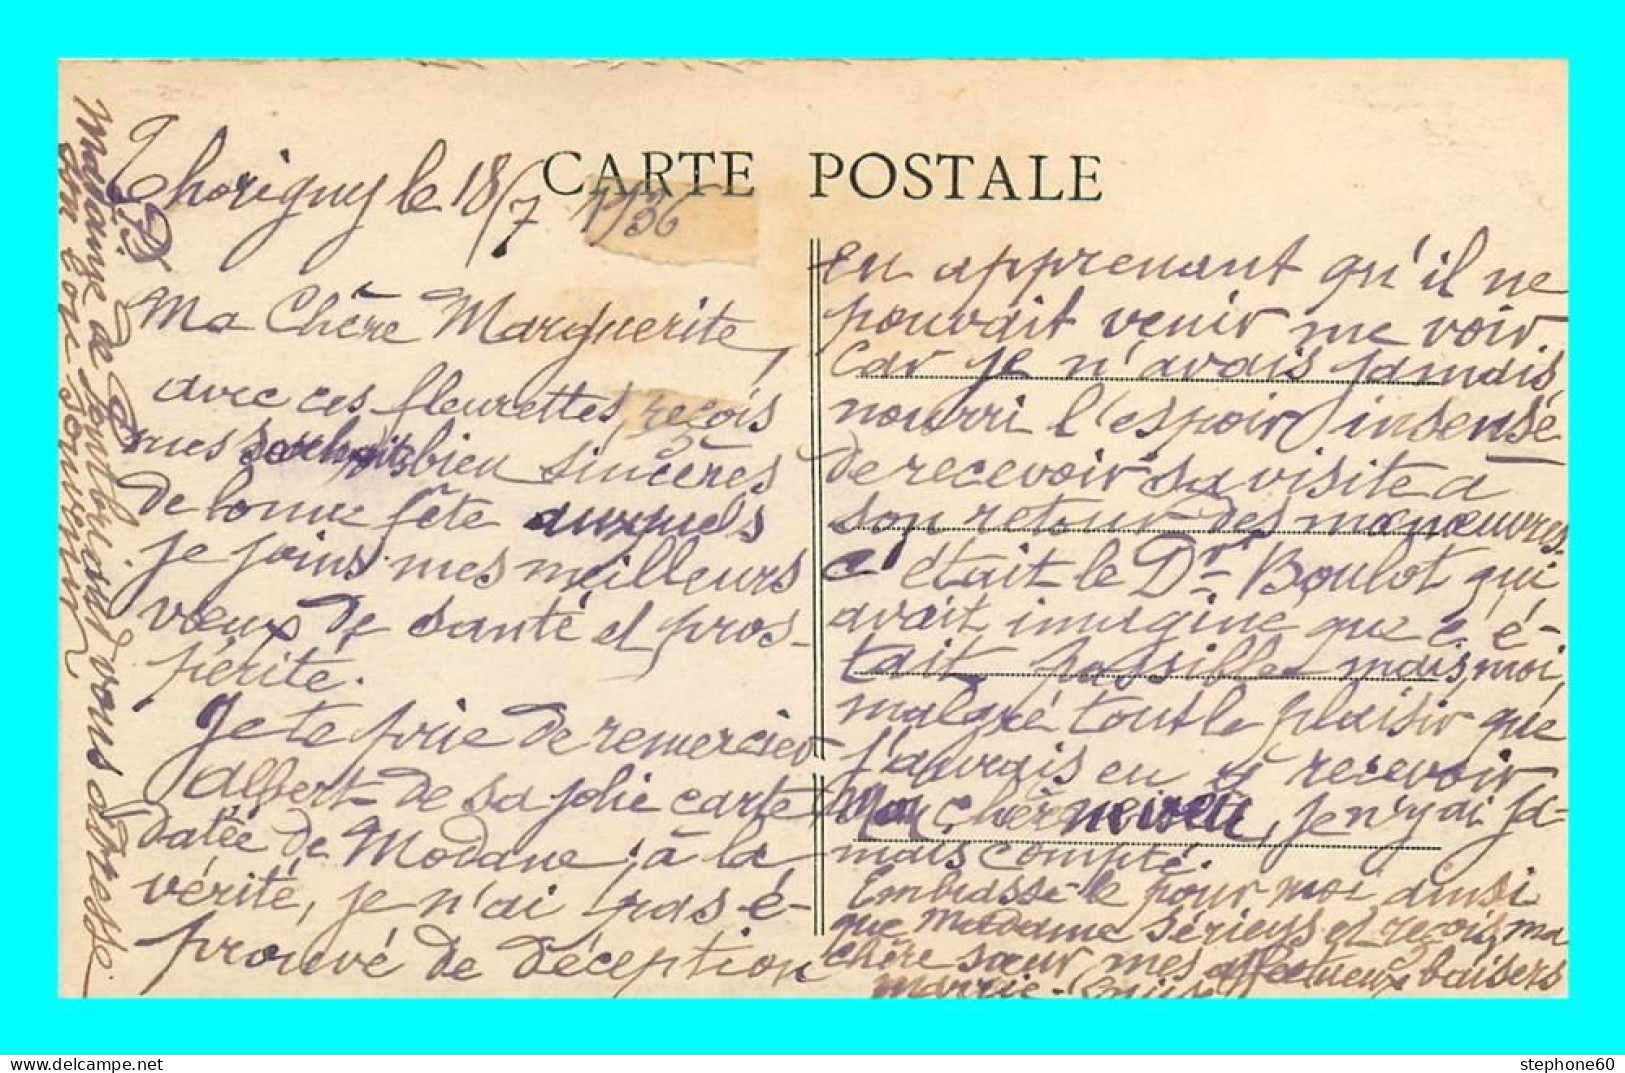 CARTE POSTALE
Thorigny le 18/7 1936
Ma Chère Marguerite,
avec ces fleurettes, reçois
mes souhaits bien sincères
de bonne fête auxquels
je joins mes meilleurs
vœux de santé et pros-
périté.
Je te prie de remercier
Albert de sa jolie carte
datée de Modane ; à la
vérité, je n'ai pas é-
prouvé de déception
en apprenant qu'il ne
pouvait venir me voir
car je n'avais jamais
nourri l'espoir insensé
de recevoir sa visite a
son retour des manœuvres.
c'était le Dr Boulot qui
avait imaginé que c'é-
tait possible mais, moi,
malgré tout le plaisir que
j'aurais eu à recevoir
Mon Cher neveu, je n'y ai ja-
mais compté.
Embrasse-le pour moi ainsi
que Madame Sérieys et reçois, ma
chère sœur mes affectueux baisers
Marie-
Madame de vous adresse
son bon souvenir
stephone60